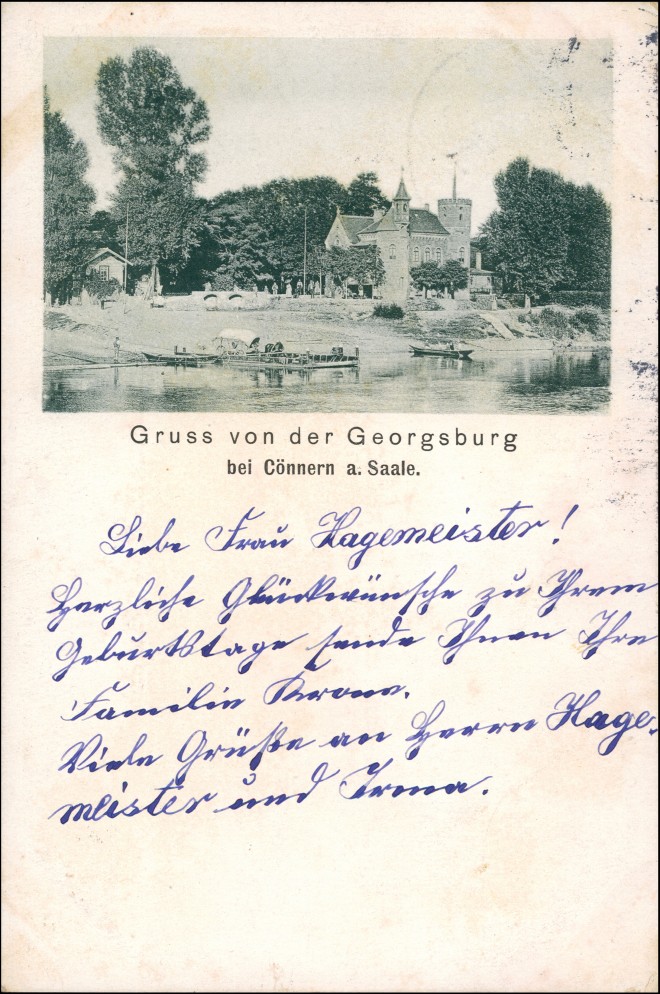 Gruss von der Georgsburg
bei Cönnern a. Saale.
Liebe Frau Hagemeister!
Herzliche Glückwünsche zu Ihrem
Geburtstage sende Ihnen Ihre
Familie Krone.
Viele Grüße an Herrn Hage-
meister und Irma.